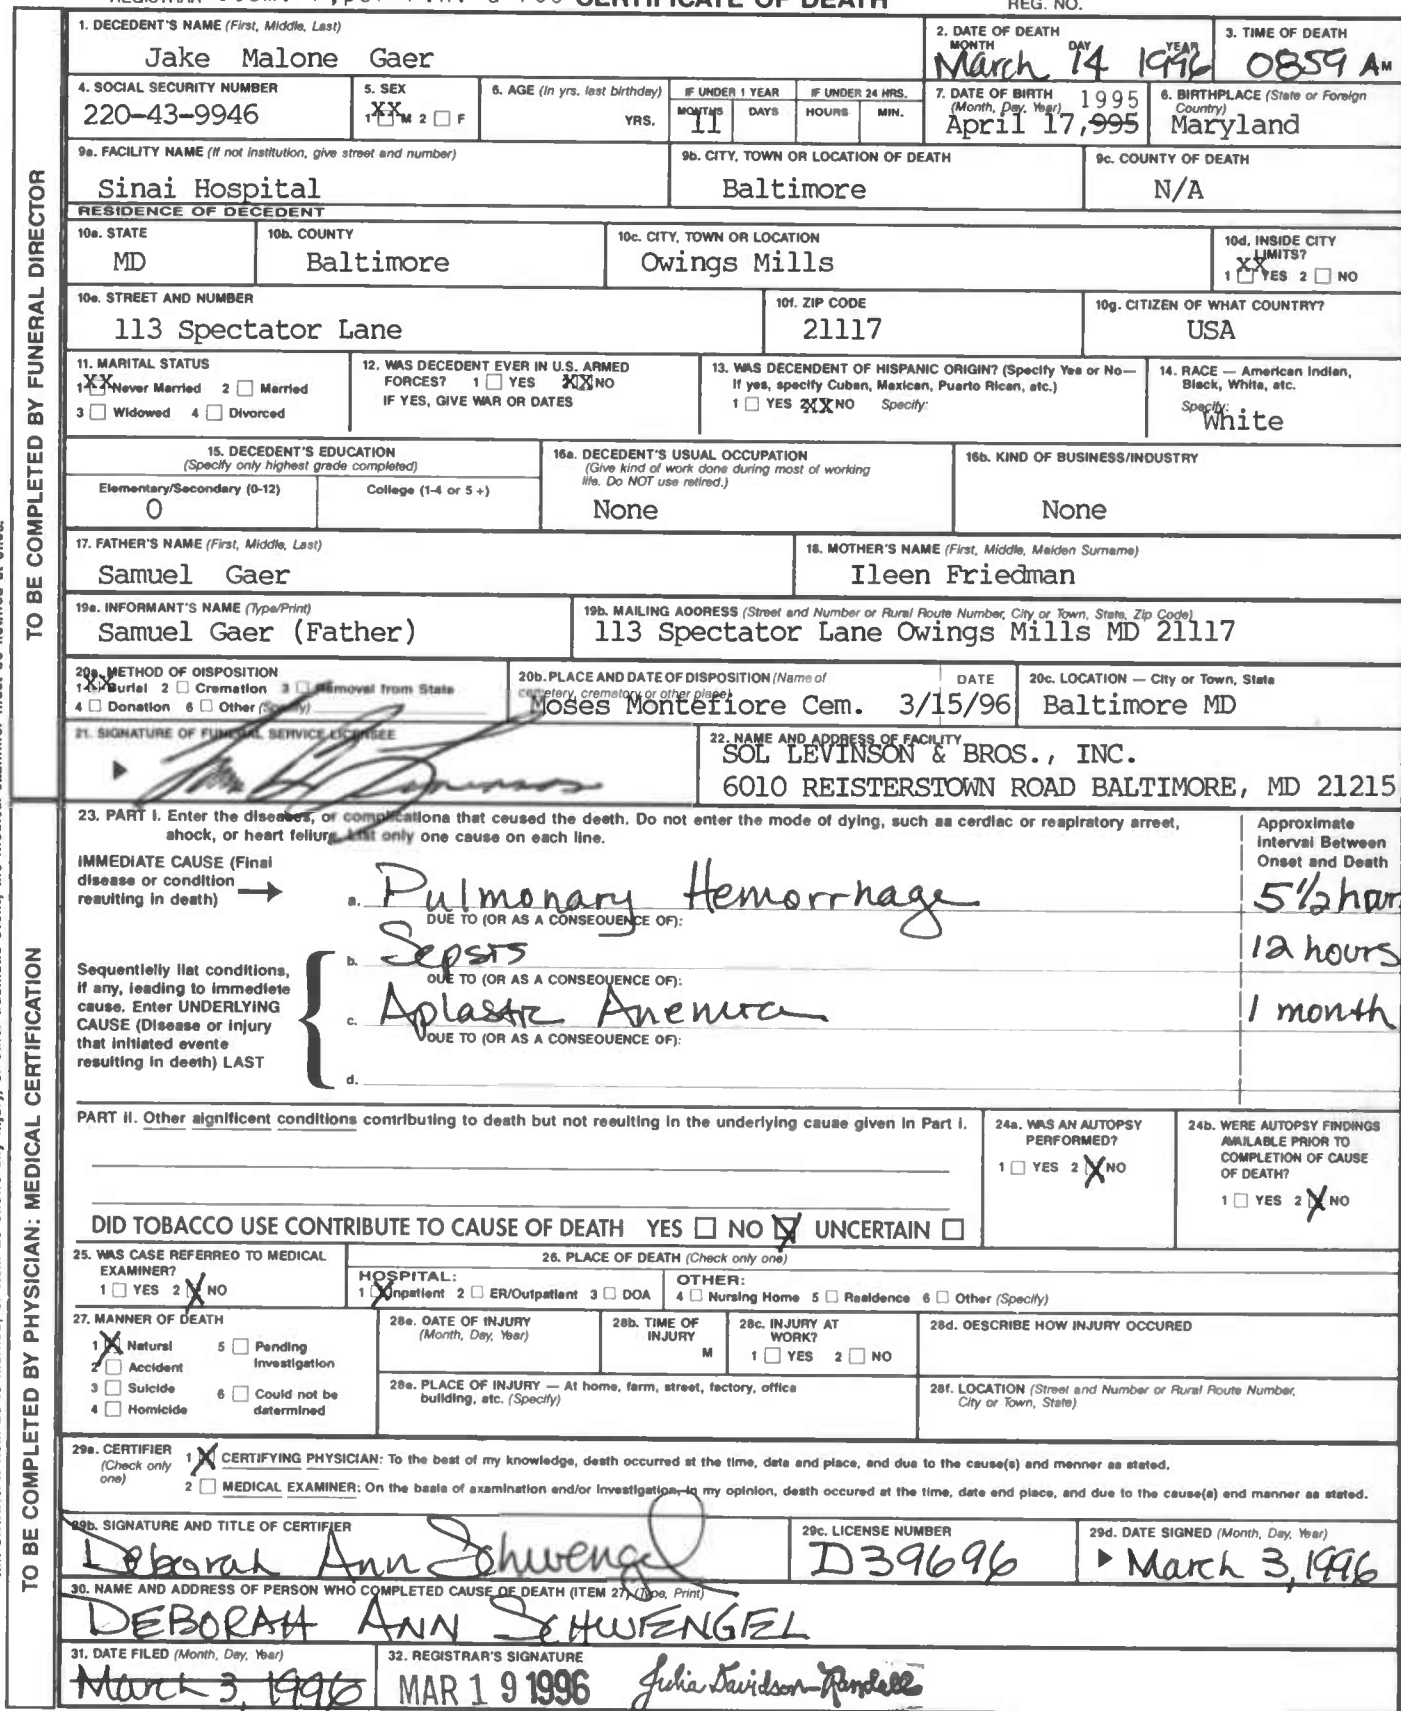 CERTIFICATE OF DEATH
REG. NO.
1. DECEDENT'S NAME (First, Middle, Last)
Jake Malone Gaer
2. DATE OF DEATH
MONTH DAY YEAR
March 14 1996
3. TIME OF DEATH
0859 AM
4. SOCIAL SECURITY NUMBER
220-43-9946
5. SEX
1 XX M 2 ☐ F
6. AGE (In yrs. last birthday)
YRS.
IF UNDER 1 YEAR
MONTHS DAYS
11
IF UNDER 24 HRS.
HOURS MIN.
7. DATE OF BIRTH
(Month, Day, Year) 1995
April 17, 995
6. BIRTHPLACE (State or Foreign
Country)
Maryland
9a. FACILITY NAME (If not institution, give street and number)
Sinai Hospital
9b. CITY, TOWN OR LOCATION OF DEATH
Baltimore
9c. COUNTY OF DEATH
N/A
RESIDENCE OF DECEDENT
10a. STATE
MD
10b. COUNTY
Baltimore
10c. CITY, TOWN OR LOCATION
Owings Mills
10d. INSIDE CITY
LIMITS?
1 XX YES 2 ☐ NO
10e. STREET AND NUMBER
113 Spectator Lane
10f. ZIP CODE
21117
10g. CITIZEN OF WHAT COUNTRY?
USA
11. MARITAL STATUS
1 XX Never Married 2 ☐ Married
3 ☐ Widowed 4 ☐ Divorced
12. WAS DECEDENT EVER IN U.S. ARMED
FORCES? 1 ☐ YES XX NO
IF YES, GIVE WAR OR DATES
13. WAS DECENDENT OF HISPANIC ORIGIN? (Specify Yes or No—
If yes, specify Cuban, Mexican, Puerto Rican, etc.)
1 ☐ YES 2 XX NO Specify:
14. RACE — American Indian,
Black, White, etc.
Specify:
White
15. DECEDENT'S EDUCATION
(Specify only highest grade completed)
Elementary/Secondary (0-12) College (1-4 or 5 +)
0
16a. DECEDENT'S USUAL OCCUPATION
(Give kind of work done during most of working
life. Do NOT use retired.)
None
16b. KIND OF BUSINESS/INDUSTRY
None
17. FATHER'S NAME (First, Middle, Last)
Samuel Gaer
18. MOTHER'S NAME (First, Middle, Maiden Surname)
Ileen Friedman
19a. INFORMANT'S NAME (Type/Print)
Samuel Gaer (Father)
19b. MAILING ADDRESS (Street and Number or Rural Route Number, City or Town, State, Zip Code)
113 Spectator Lane Owings Mills MD 21117
20a. METHOD OF DISPOSITION
1 XX Burial 2 ☐ Cremation 3 ☐ Removal from State
4 ☐ Donation 6 ☐ Other (Specify)
20b. PLACE AND DATE OF DISPOSITION (Name of
cemetery, crematory or other place) DATE
Moses Montefiore Cem. 3/15/96
20c. LOCATION — City or Town, State
Baltimore MD
21. SIGNATURE OF FUNERAL SERVICE LICENSEE
22. NAME AND ADDRESS OF FACILITY
SOL LEVINSON & BROS., INC.
6010 REISTERSTOWN ROAD BALTIMORE, MD 21215
TO BE COMPLETED BY FUNERAL DIRECTOR
23. PART I. Enter the diseases, or complications that caused the death. Do not enter the mode of dying, such as cardiac or respiratory arrest,
shock, or heart failure. List only one cause on each line.
Approximate
Interval Between
Onset and Death
IMMEDIATE CAUSE (Final
disease or condition
resulting in death)
a. Pulmonary Hemorrhage 5 1/2 hour
DUE TO (OR AS A CONSEQUENCE OF):
b. Sepsis 12 hours
DUE TO (OR AS A CONSEQUENCE OF):
c. Aplastic Anemia 1 month
DUE TO (OR AS A CONSEQUENCE OF):
d.
Sequentially list conditions,
if any, leading to immediate
cause. Enter UNDERLYING
CAUSE (Disease or injury
that initiated events
resulting in death) LAST
PART II. Other significant conditions contributing to death but not resulting in the underlying cause given in Part I.
24a. WAS AN AUTOPSY
PERFORMED?
1 ☐ YES 2 X NO
24b. WERE AUTOPSY FINDINGS
AVAILABLE PRIOR TO
COMPLETION OF CAUSE
OF DEATH?
1 ☐ YES 2 X NO
DID TOBACCO USE CONTRIBUTE TO CAUSE OF DEATH YES ☐ NO X UNCERTAIN ☐
25. WAS CASE REFERRED TO MEDICAL
EXAMINER?
1 ☐ YES 2 X NO
26. PLACE OF DEATH (Check only one)
HOSPITAL:
1 X Inpatient 2 ☐ ER/Outpatient 3 ☐ DOA
OTHER:
4 ☐ Nursing Home 5 ☐ Residence 6 ☐ Other (Specify)
27. MANNER OF DEATH
1 X Natural 5 ☐ Pending
2 ☐ Accident Investigation
3 ☐ Suicide 6 ☐ Could not be
4 ☐ Homicide determined
28a. DATE OF INJURY
(Month, Day, Year)
28b. TIME OF
INJURY
M
28c. INJURY AT
WORK?
1 ☐ YES 2 ☐ NO
28d. DESCRIBE HOW INJURY OCCURED
28e. PLACE OF INJURY — At home, farm, street, factory, office
building, etc. (Specify)
28f. LOCATION (Street and Number or Rural Route Number,
City or Town, State)
29a. CERTIFIER
(Check only
one)
1 X CERTIFYING PHYSICIAN: To the best of my knowledge, death occurred at the time, date and place, and due to the cause(s) and manner as stated.
2 ☐ MEDICAL EXAMINER: On the basis of examination and/or investigation, in my opinion, death occured at the time, date and place, and due to the cause(s) and manner as stated.
29b. SIGNATURE AND TITLE OF CERTIFIER
Deborah Ann Schwengel
29c. LICENSE NUMBER
D39696
29d. DATE SIGNED (Month, Day, Year)
March 3, 1996
30. NAME AND ADDRESS OF PERSON WHO COMPLETED CAUSE OF DEATH (ITEM 27) (Type, Print)
DEBORAH ANN SCHWENGEL
31. DATE FILED (Month, Day, Year)
March 3, 1996
32. REGISTRAR'S SIGNATURE
MAR 19 1996 Julia Davidson-Randall
TO BE COMPLETED BY PHYSICIAN: MEDICAL CERTIFICATION